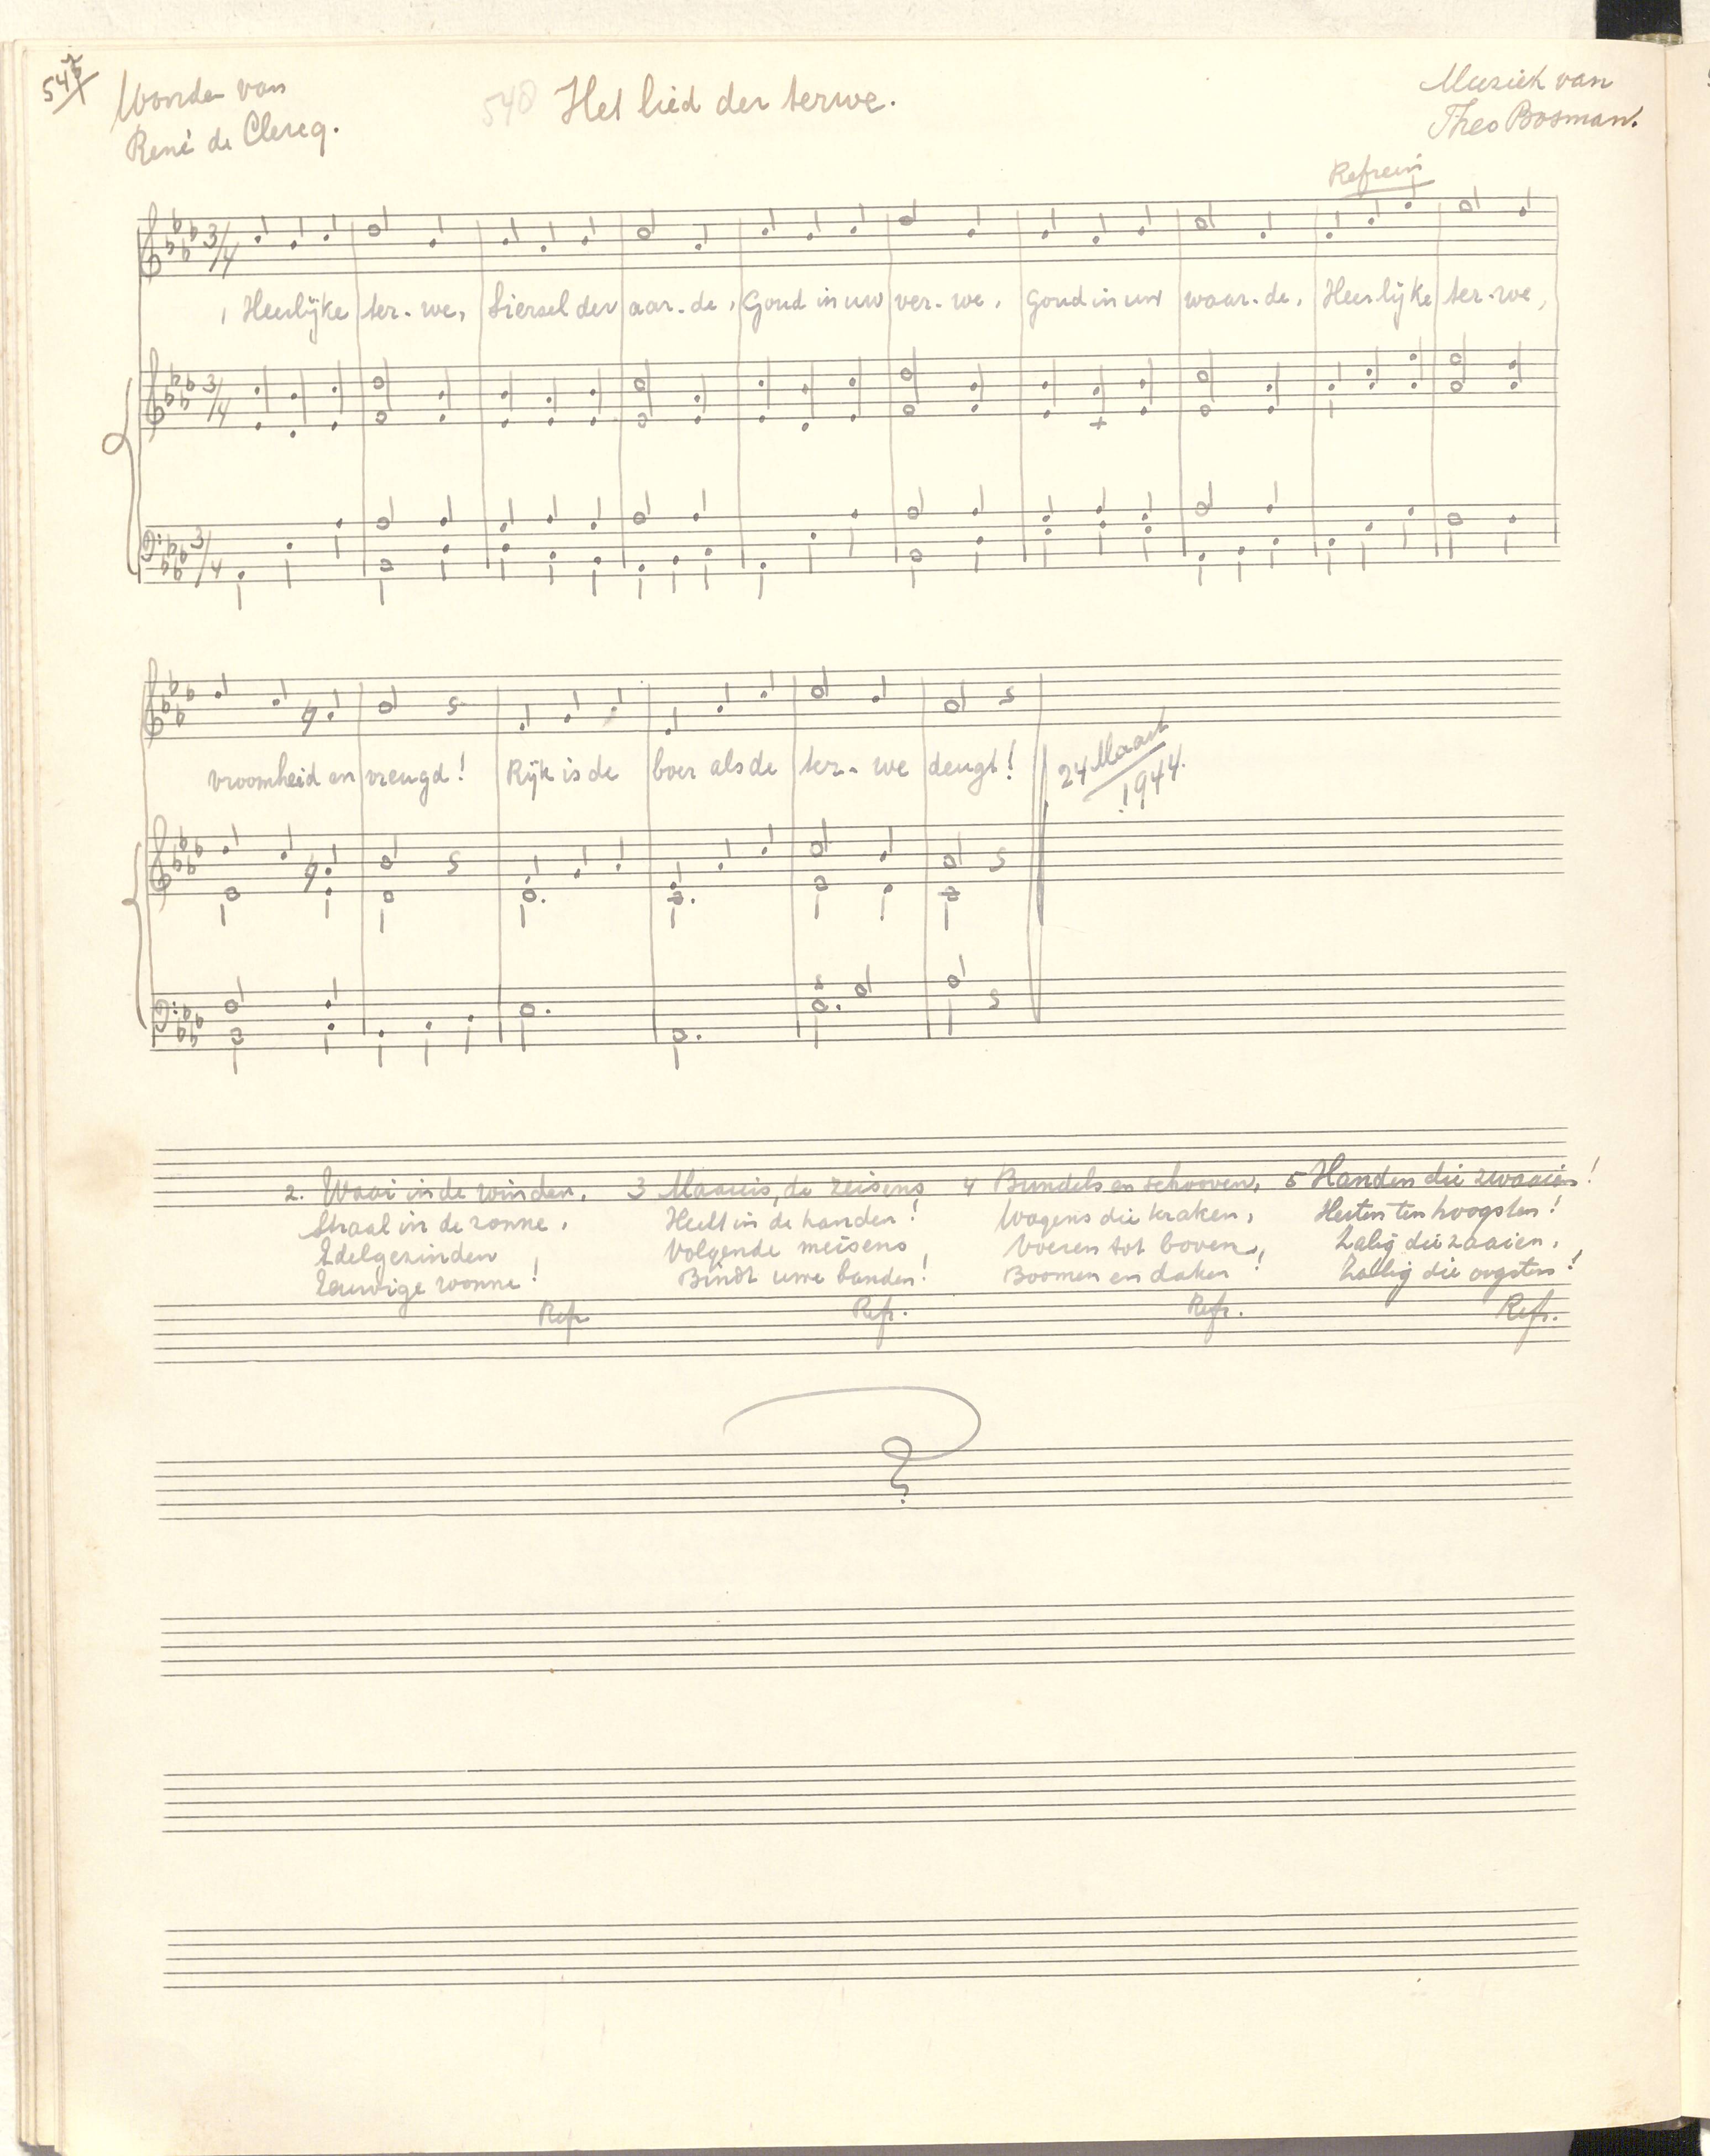 547
Woorden van
René de Clercq.
548 Het lied der terwe.
Muziek van
Theo Bosman.
Refrein
3/4
1 Heerlijke ter-we, Siersel der aar-de, Goud in uw ver-we, Goud in uw waar-de, Heerlijke ter-we,
3/4
3/4
vroomheid en vreugd! Rijk is de boer als de ter-we deugt!
24 Maart
1944.
2. Waai in de winden, 3 Maaiers, de zeisens 4 Bundels en schooven, 5 Handen die zwaaien!
Straal in de zonne, Heelt in de handen! Wagens die kraken, Herten ten hoogsten!
Edelgezinden Volgende meisens, Voeren tot boven, Zalig die zaaien,
Eeuwige wonne! Bindt uwe banden! Boomen en daken! Zalig die oogsten!
Refr. Refr. Refr. Refr.